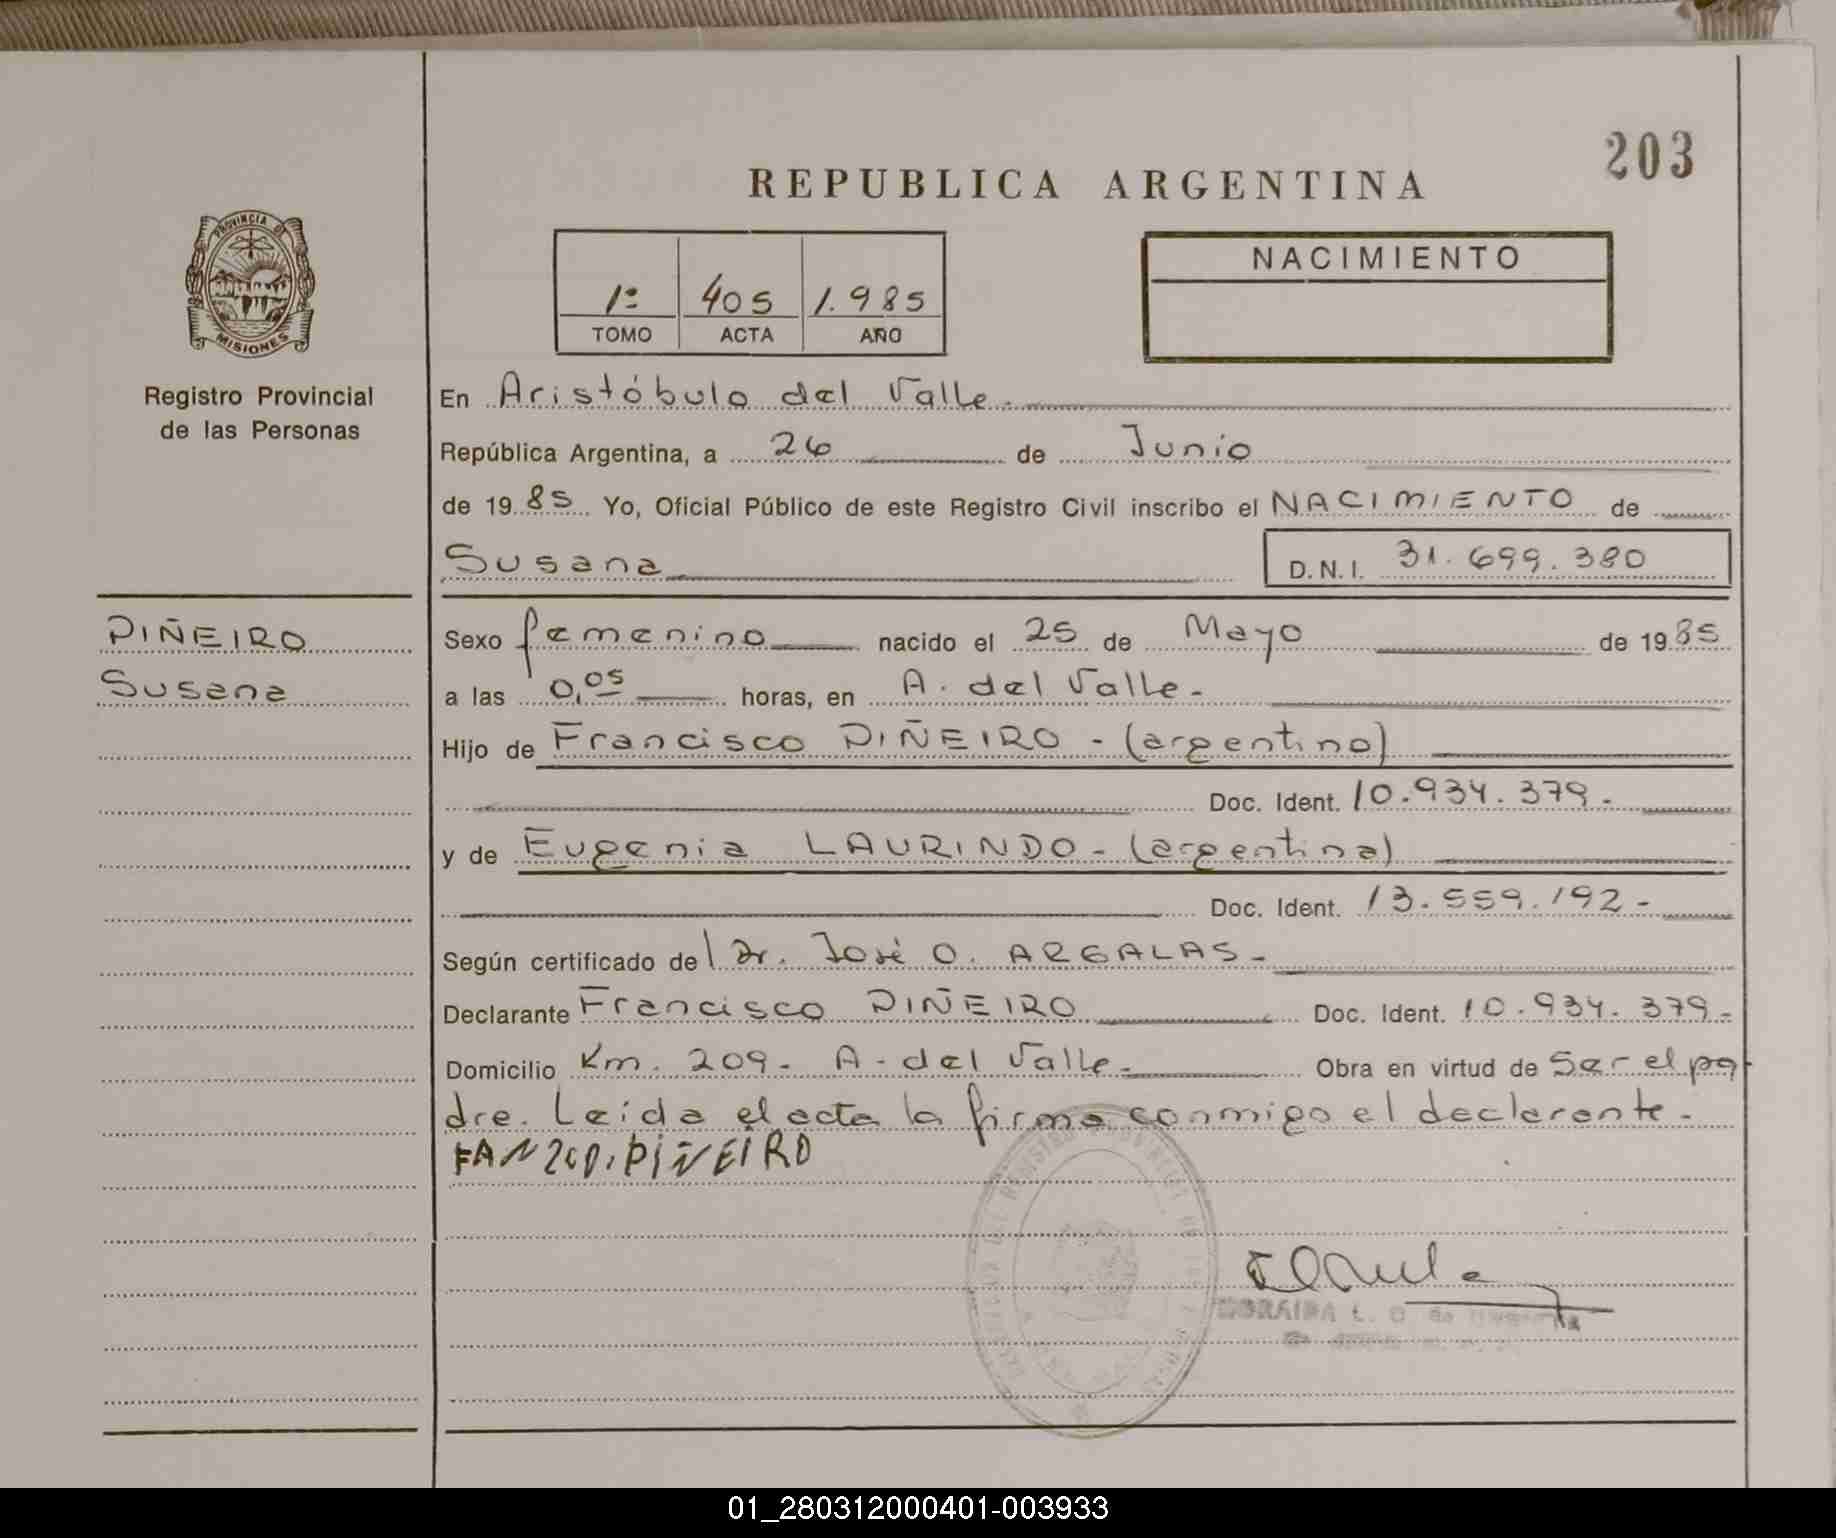 203
REPUBLICA ARGENTINA
PROVINCIA DE
MISIONES
Registro Provincial
de las Personas
1º 405 1.985
TOMO ACTA AÑO
NACIMIENTO
En Aristóbulo del Valle.
República Argentina, a 26 de Junio
de 1985 Yo, Oficial Público de este Registro Civil inscribo el NACIMIENTO de
Susana D.N.I. 31.699.380
PIÑEIRO
Susana
Sexo femenino nacido el 25 de Mayo de 1985
a las 0,05 horas, en A. del Valle-
Hijo de Francisco PIÑEIRO - (argentino)
Doc. Ident. 10.934.379-
y de Eugenia LAURINDO - (argentina)
Doc. Ident. 13.559.192-
Según certificado del Dr. José O. ARGALAS-
Declarante Francisco PIÑEIRO Doc. Ident. 10.934.379-
Domicilio Km. 209- A. del Valle- Obra en virtud de Ser el pa-
dre. Leída el acta la firma conmigo el declarante-
PIÑEIRO
MORAIRA L. O. de
01_280312000401-003933